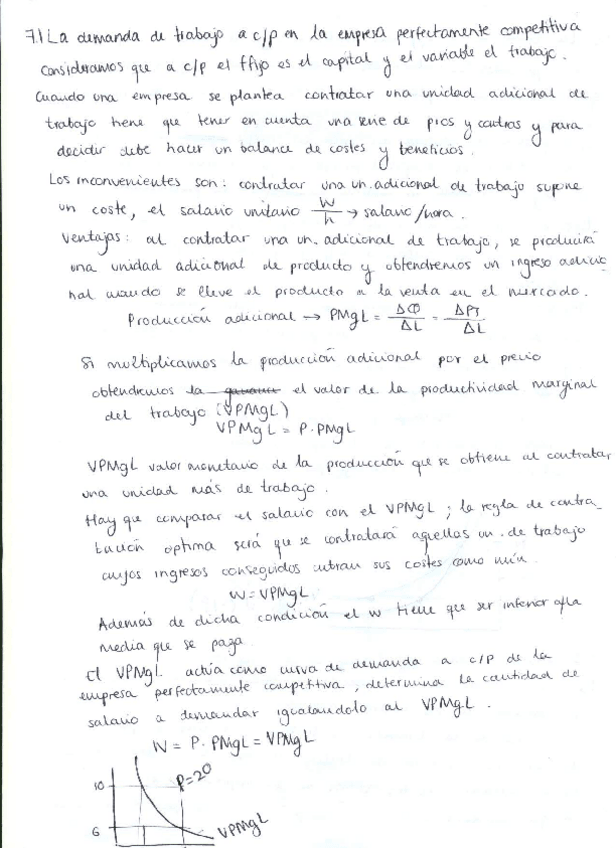 7.1 La demanda de trabajo a c/p en la empresa perfectamente competitiva
Consideramos que a c/p el ffijo es el capital y el variable el trabajo.
Cuando una empresa se plantea contratar una unidad adicional de
trabajo tiene que tener en cuenta una serie de pros y contras y para
decidir debe hacer un balance de costes y beneficios.
Los inconvenientes son: contratar una un. adicional de trabajo supone
un coste, el salario unitario W/h → salario/hora.
Ventajas: al contratar una un. adicional de trabajo, se producirá
una unidad adicional de producto y obtendremos un ingreso adicio
nal cuando se lleve el producto a la venta en el mercado.
Producción adicional → PMgL = ΔQ/ΔL = ΔPT/ΔL
Si multiplicamos la producción adicional por el precio
obtendremos la el valor de la productividad marginal
del trabajo (VPMgL)
VPMgL = P · PMgL
VPMgL valor monetario de la producción que se obtiene al contratar
una unidad más de trabajo.
Hay que comparar el salario con el VPMgL; la regla de contra_
tación óptima será que se contratará aquellas un. de trabajo
cuyos ingresos conseguidos cubran sus costes como mín.
W = VPMgL
Además de dicha condición el w tiene que ser inferior a la
media que se paga.
El VPMgL actúa como curva de demanda a c/p de la
empresa perfectamente competitiva, determina la cantidad de
salario a demandar igualandolo al VPMgL.
W = P · PMgL = VPMgL
10
P=20
6
VPMgL